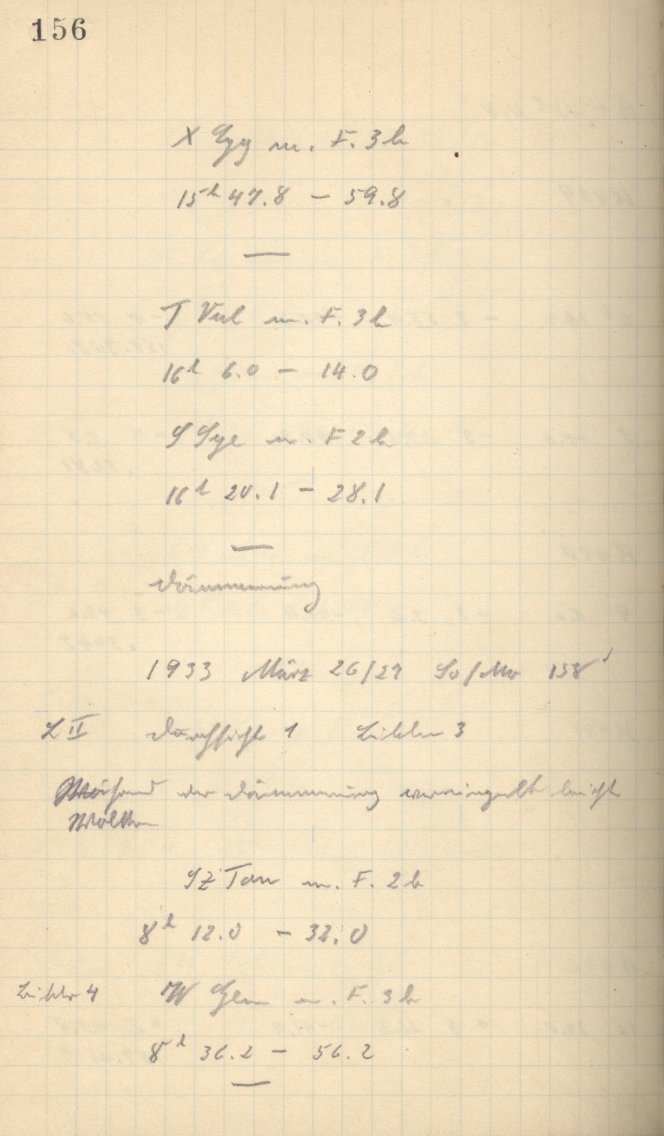 156
X Cyg m. F. 3 b
15h 47.8 – 59.8
T Vul m. F. 3 b
16h 6.0 – 14.0
m. F 2 b
16h 20.1 – 28.1
Dämmerung
1933 März 26/27 So/Mo 138
L II Durchsicht 1 Bilder 3
Während der Dämmerung vereinzelt leichte
Wolken
SZ Tau m. F. 2 b
8h 12.0 – 32.0
Bilder 4 W Gem m. F. 3 b
8h 36.2 – 56.2